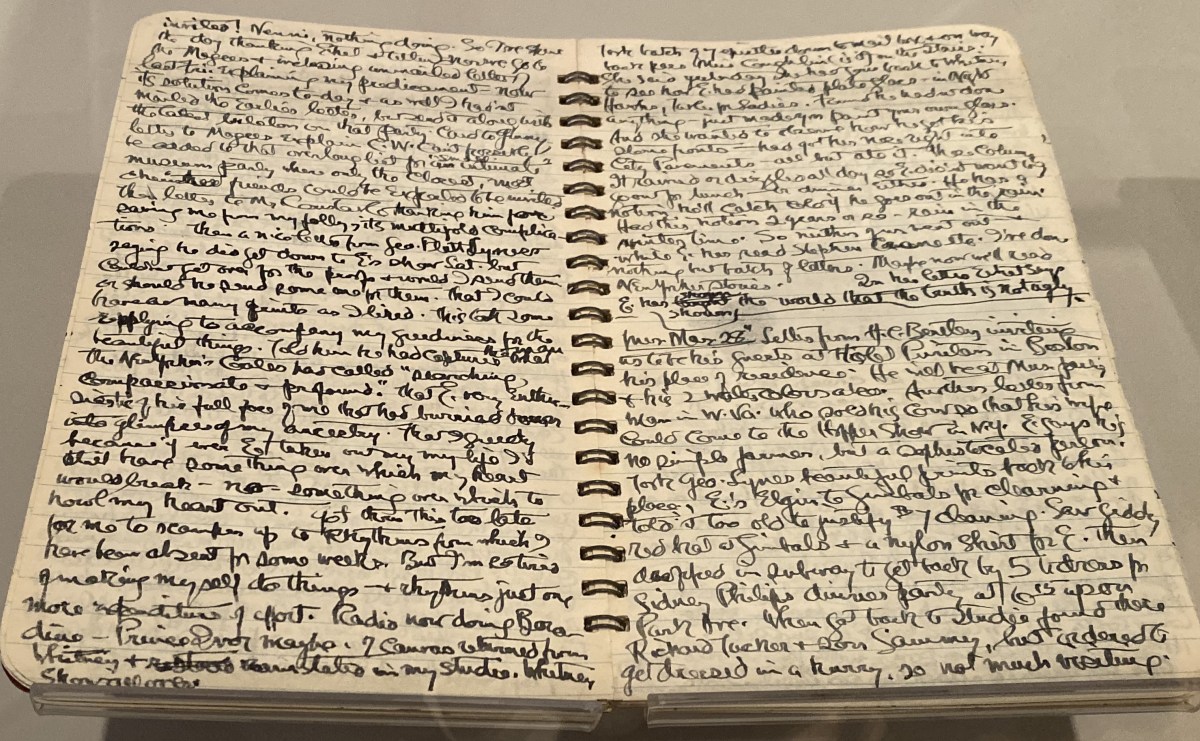 invited! Nenni, nothing doing. So I've spent
the day thanking Ethel
the Magees + enclosing unmailed letter
last Fri. explaining my predicament — now
its solution comes to-day + as well I hadn't
mailed the earlier letter, but send it along with
the latest bulletin on that party.
letter to Magees explain C. W. can't possibly
be added to that overlong list for intimate
museum party where only the closest, most
cherished friends could be expected to be invited
Then letter to Mr. thanking him for
saving me from my folly + its multifold complica-
tions. Then a nice letter from Geo. Platt Lynes
saying he did get down to E's show Sat. but
couldn't get over for the party + would I send them
or should he send some one for them. That I could
have as many prints as I liked. This took some
replying to accompany my greediness for the
beautiful things. Told him he had captured in E what
the New Yorker's Coates has called "searching,
compassionate + profound." That E. very enthu-
siastic of his full face of me that had burrowed down
into glimpses of my ancestry. That I greedy
because if ever E. takes out my my life I'd
still have something over which my heart
would break — no — something over which to
howl my heart out. Got down this too late
for me to scamper up to Rhythms from which I
have been absent for some weeks. But I'm so tired
of making myself do things — + rhythms just one
more expenditure of effort. Radio now doing Boro-
dine — Prince Igor maybe. 7 canvas returned from
Whitney + in my studio. Whitney
show all over.
Took batch of 9 epistles down to mail box + on way
back pass Miss Coughlin is it on the stairs.
She said yesterday she had gone back to Whitney
to see how E had painted plate glass — in Night
Hawks, like in Ladies. Found he hadn't done
anything — just made you paint your own glass.
And she wanted to discern how he got his
stone fronts — had got her nose right into
City Pavements — all but ate it — those columns
It rained or drizzled all day so E didn't want to go
out for lunch. Or dinner either. He has a
notion he'll catch cold if he goes out in the rain.
Had this notion 2 years or so — rain in the
winter time. So neither of us went out —
while E. has read Stephen I've done
nothing but batch of letters. Maybe now will read
New Yorker stories. In her letter What says
E. has shown the world that the truth is not ugly
Mon. Mar. 28" letter from H. C. Bentley inviting
us to be his guests at Hotel Puritan in Boston
his place of residence. He will treat Mus. party
+ his 2 watercolors also. Another letter from
man in W. Va. who sold his cow so that his wife
could come to the Hopper Show in N.Y. E. says he's
no simple farmer, but a sophisticated person.
Took Geo. Lynes beautiful prints back to his
place, E's Elgin to Gimbals for cleaning +
told it too old to justify $7 cleaning. Saw giddy
red hat at Gimbals + a nylon shirt for E. Then
dropped in subway to get back by 5 to dress for
Sidney Philips dinner party at 6:15 up on
Park Ave. When got back to studio found there
Richard Tucker + son Sammy, but ordered to
get dressed in a hurry, so not much visiting.